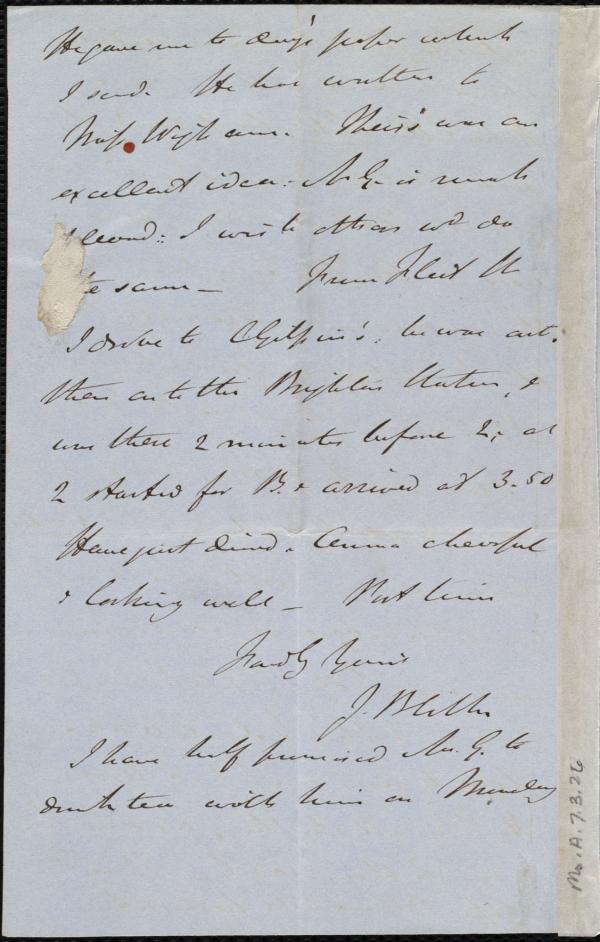 He gave me to day's paper which
I send. He has written to
Miss Wigham. Theirs was an
excellent idea: Mr G. is much
pleased: I wish others wd do
the same — From Fleet St
I drove to C Gilpin's, he was out.
then on to the Brighton Station, &
was there 2 minutes before 2, at
2 started for B. & arrived at 3.50
Have just dined. Emma cheerful
& looking well — Post time
Yours
J. B
I have half promised Mr. G. to
drink tea with him on Monday
Ms.A.7.3.26